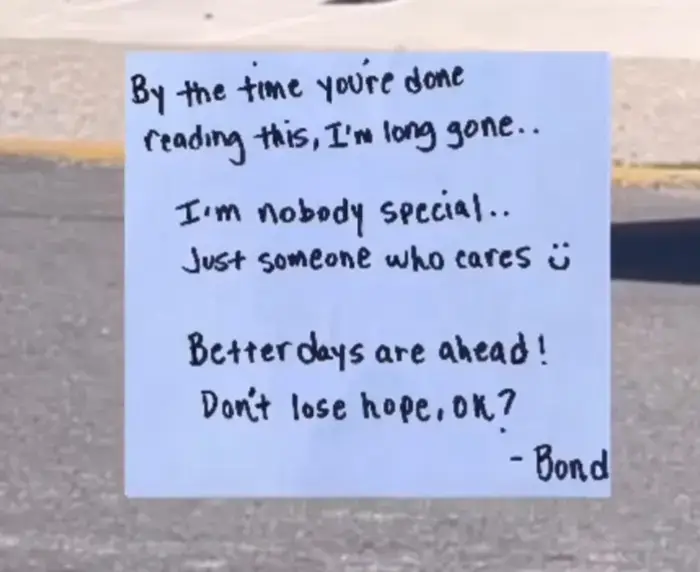 By the time you're done
reading this, I'm long gone..
I'm nobody special..
Just someone who cares :)
Better days are ahead!
Don't lose hope, OK?
- Bond